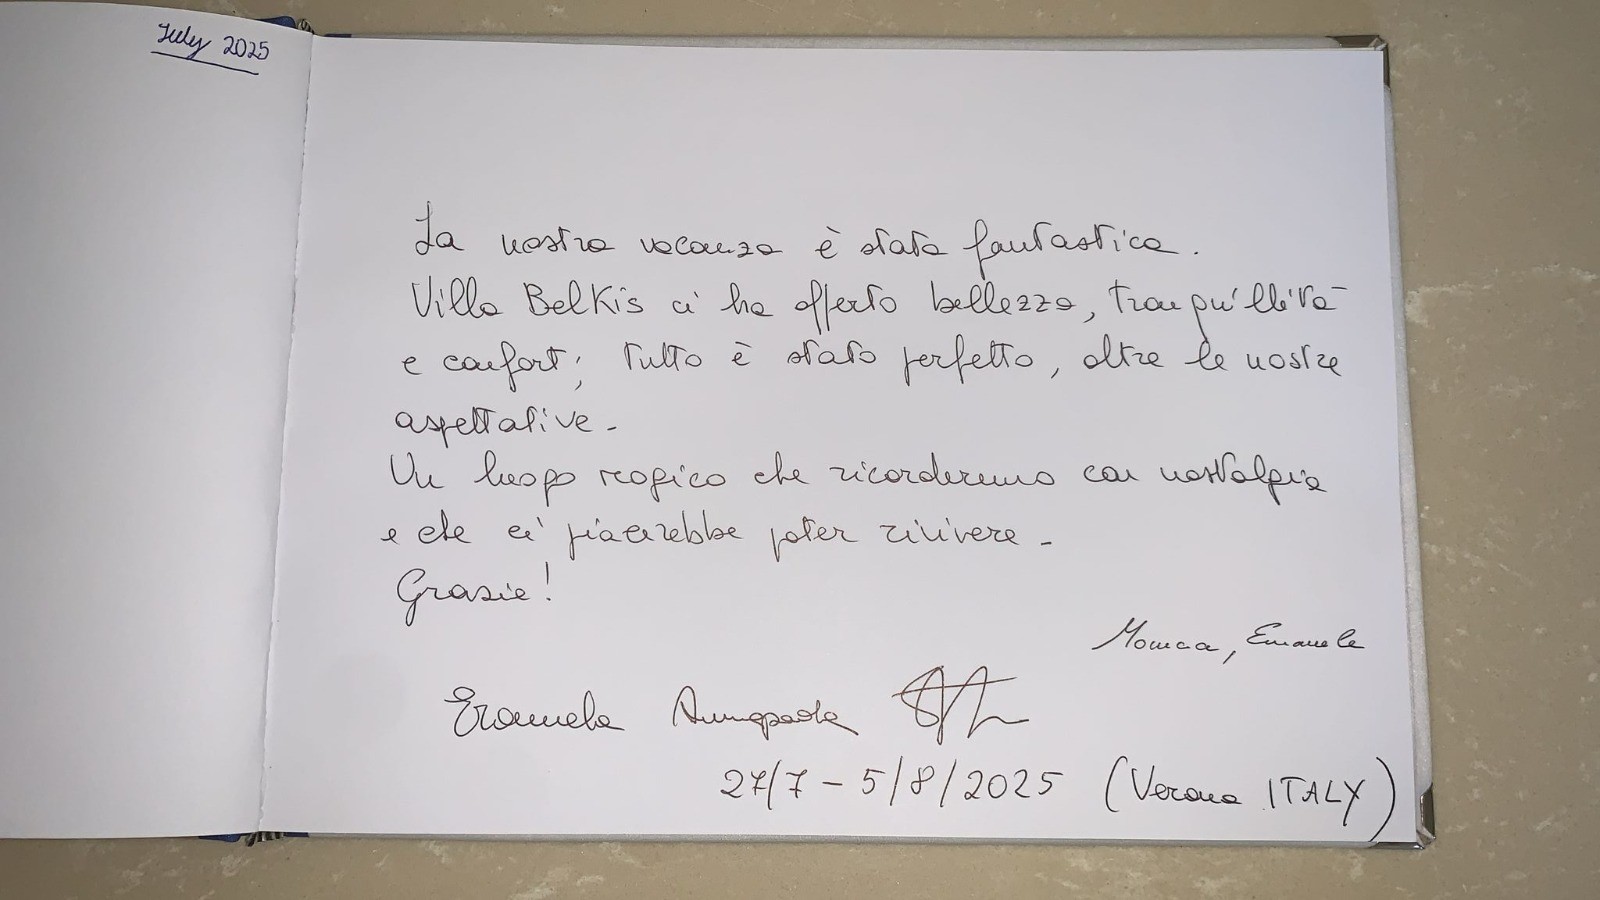 July 2025
La nostra vacanza è stata fantastica.
Villa Belkis ci ha offerto bellezza, tranquillità
e confort; tutto è stato perfetto, oltre le nostre
aspettative.
Un luogo magico che ricorderemo con nostalgia
e che ci piacerebbe poter rivivere.
Grazie!
Monica, Emanuele
Annapaola
27/7 - 5/8/2025 (Verona ITALY)